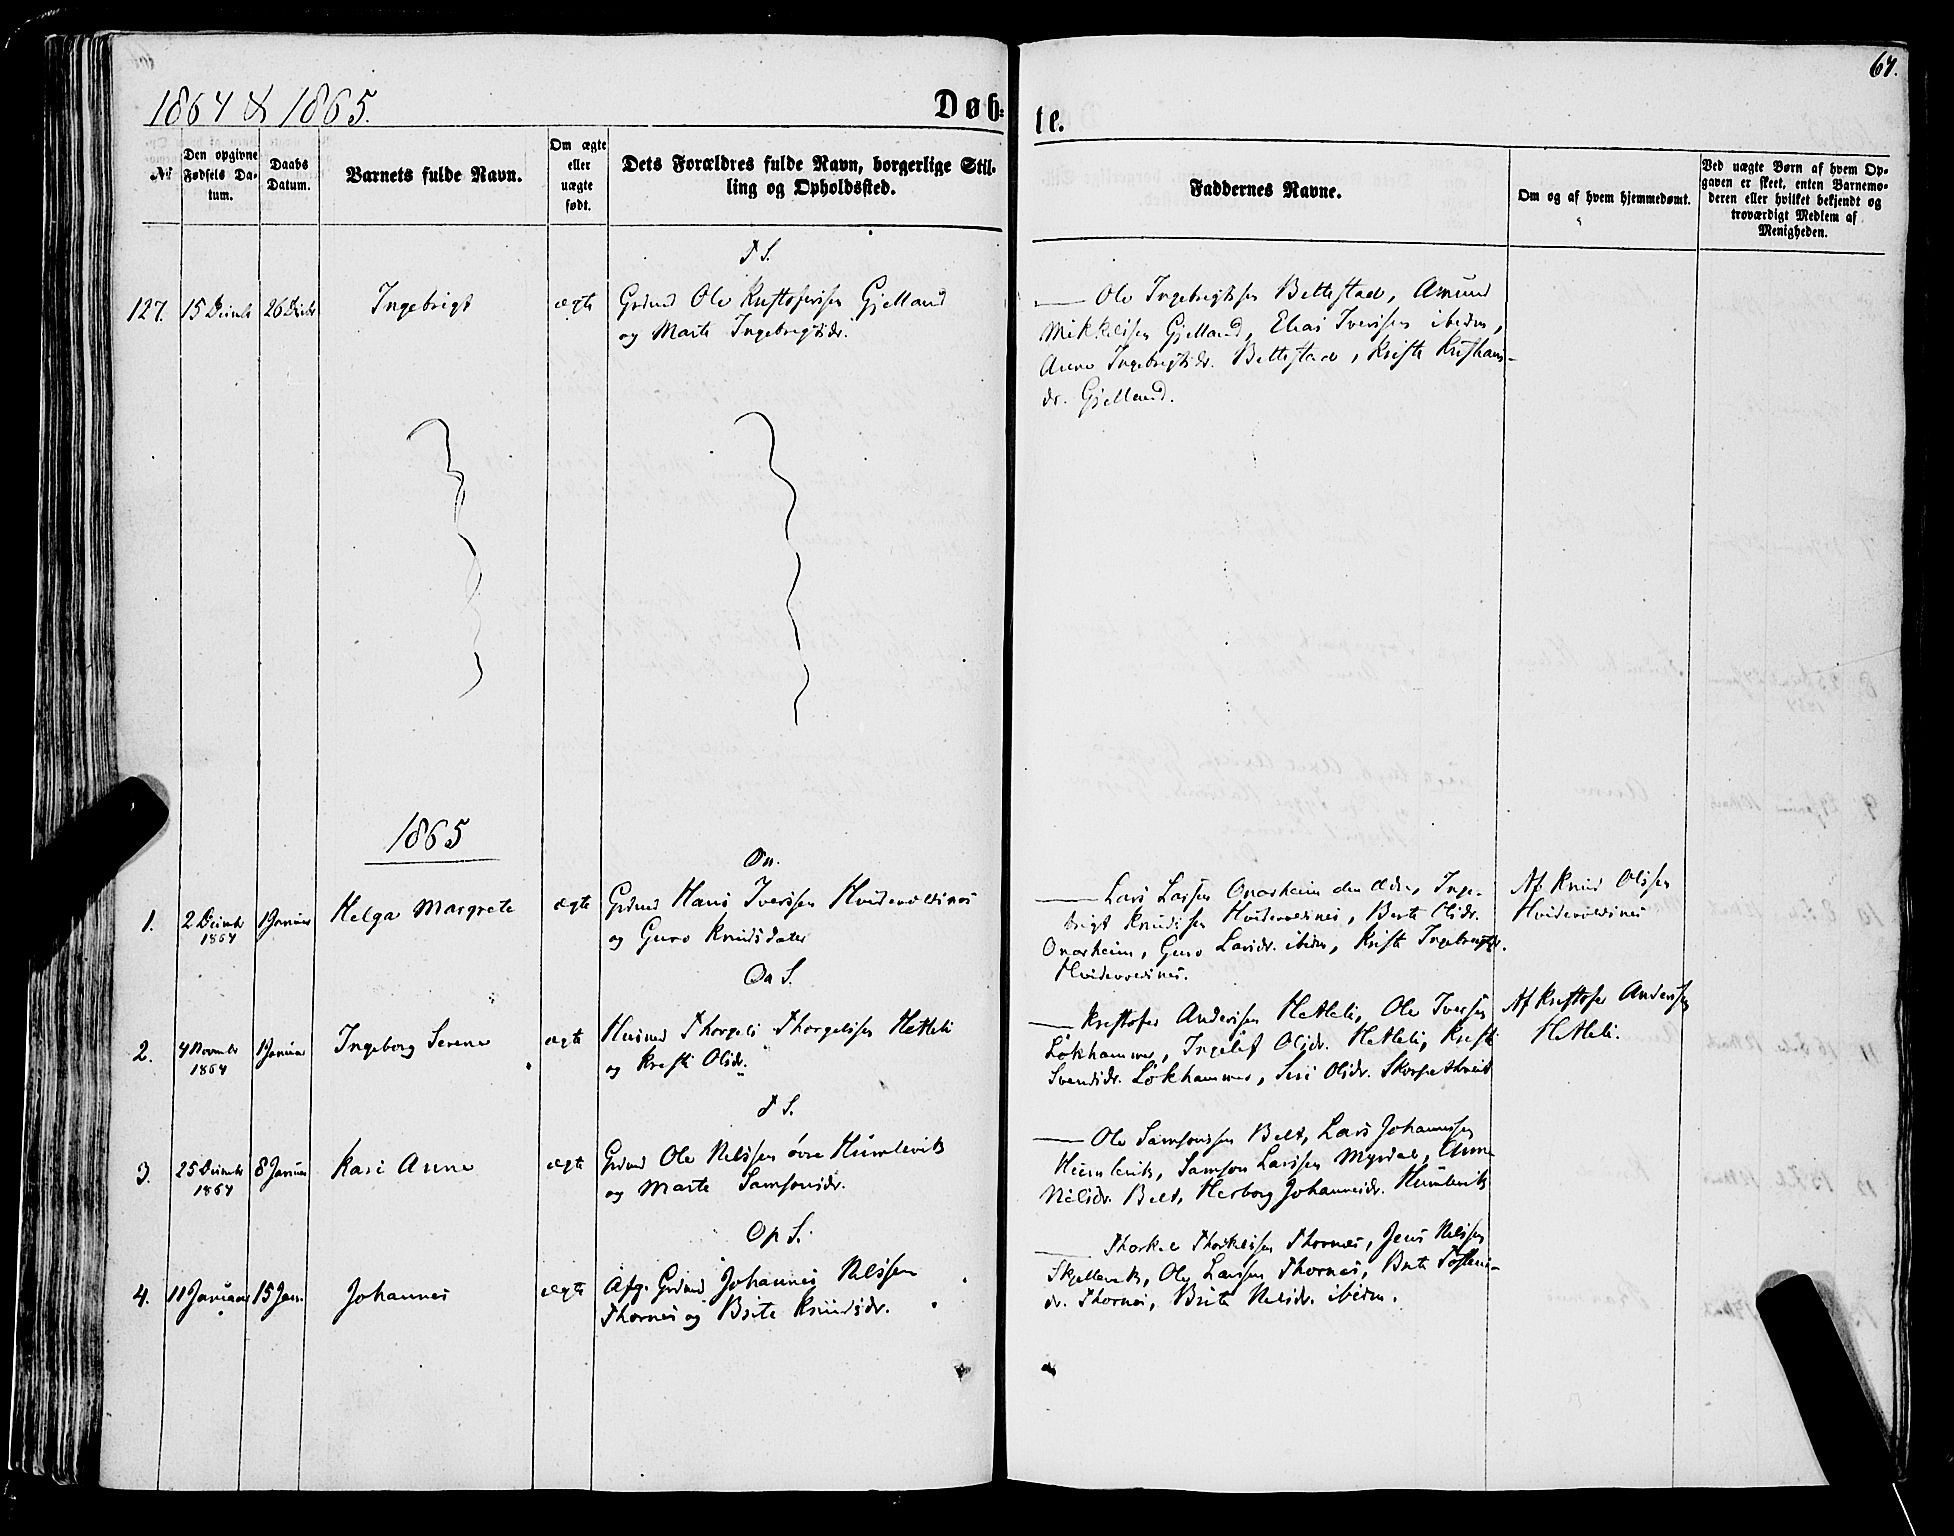 67.
1864 & 1865.
Døb-
te.
№
Den opgivne Fødsels Da-
tum.
Daabs
Datum.
Barnets fulde Navn.
Om ægte
eller
uægte
født.
Dets Forældres fulde Navn, borgerlige Stil-
ling og Opholdssted.
Faddernes Navne.
Om og af hvem hjemmedøbt.
Ved uægte Børn af hvem Op-
gaven er skeet, enten Barnemo-
deren eller hvilket bekjendt og
troværdigt Medlem af
Menigheden.
T S.
127. 15 Decemb 26 Decbr Ingebrigt ægte Grdmd Ole Kristofersen Gjelland
og Marte Ingebrigtsdr.
Ole Ingebrigtsen Bettestad, Amund
Mikkelsen Gjelland, Elias Iversen ibidm,
Anne Ingebrigtsdr. Bettestad, Kristi Kristians-
dr. Gjelland.
1865
On.
1. 2 Decmbr 1864 1 Januar Helga Margrete ægte Grdmd Hans Iversen
og Guro Knudsdater
Lars Larsen Onarheim den Ældre, Inge-
brigt Knudsen, Berte Olsdr.
Onarheim, Guro Larsdr. ibidm, Kristi Ingebrigtsdr.
Af Knud Olsen
On S.
2. 4 Novembr 1864 1 Januar Ingeborg Serene ægte Husmd Thorgels Thorgelsen Hetleli
og Kristi Olsdr.
Kristofer Andersen Hetleli, Ole Iversen
Løkhammer, Olsdr. Hetleli, Kristi
Svendsdr. Løkhammer, Siri Olsdr.
Af Kristofer Andersen
Hetleli.
T S.
3. 25 Decmbr 1864 8 Januar Kari Anne ægte Grdmd Ole Nelssen øvre Humlevik
og Marte Samsonsdr.
Ole Samsonsen Belt, Lars Johannessen
Humlevik, Samson Larssen Myrdal, Anne
Nilsdr. Belt, Herborg Johannesdr. Humlevik
Op S.
4. 11 Januar 15 Jan. Johannes ægte Afg. Grdmd Johannes Nelssen
Thornes og Brite Knudsdr.
Thorkel Thorkelsen Thornes, Jens Nelssen
Ole Larssen Thornes, Brite
dr. Thornes, Brite Nelsdr. ibidm.